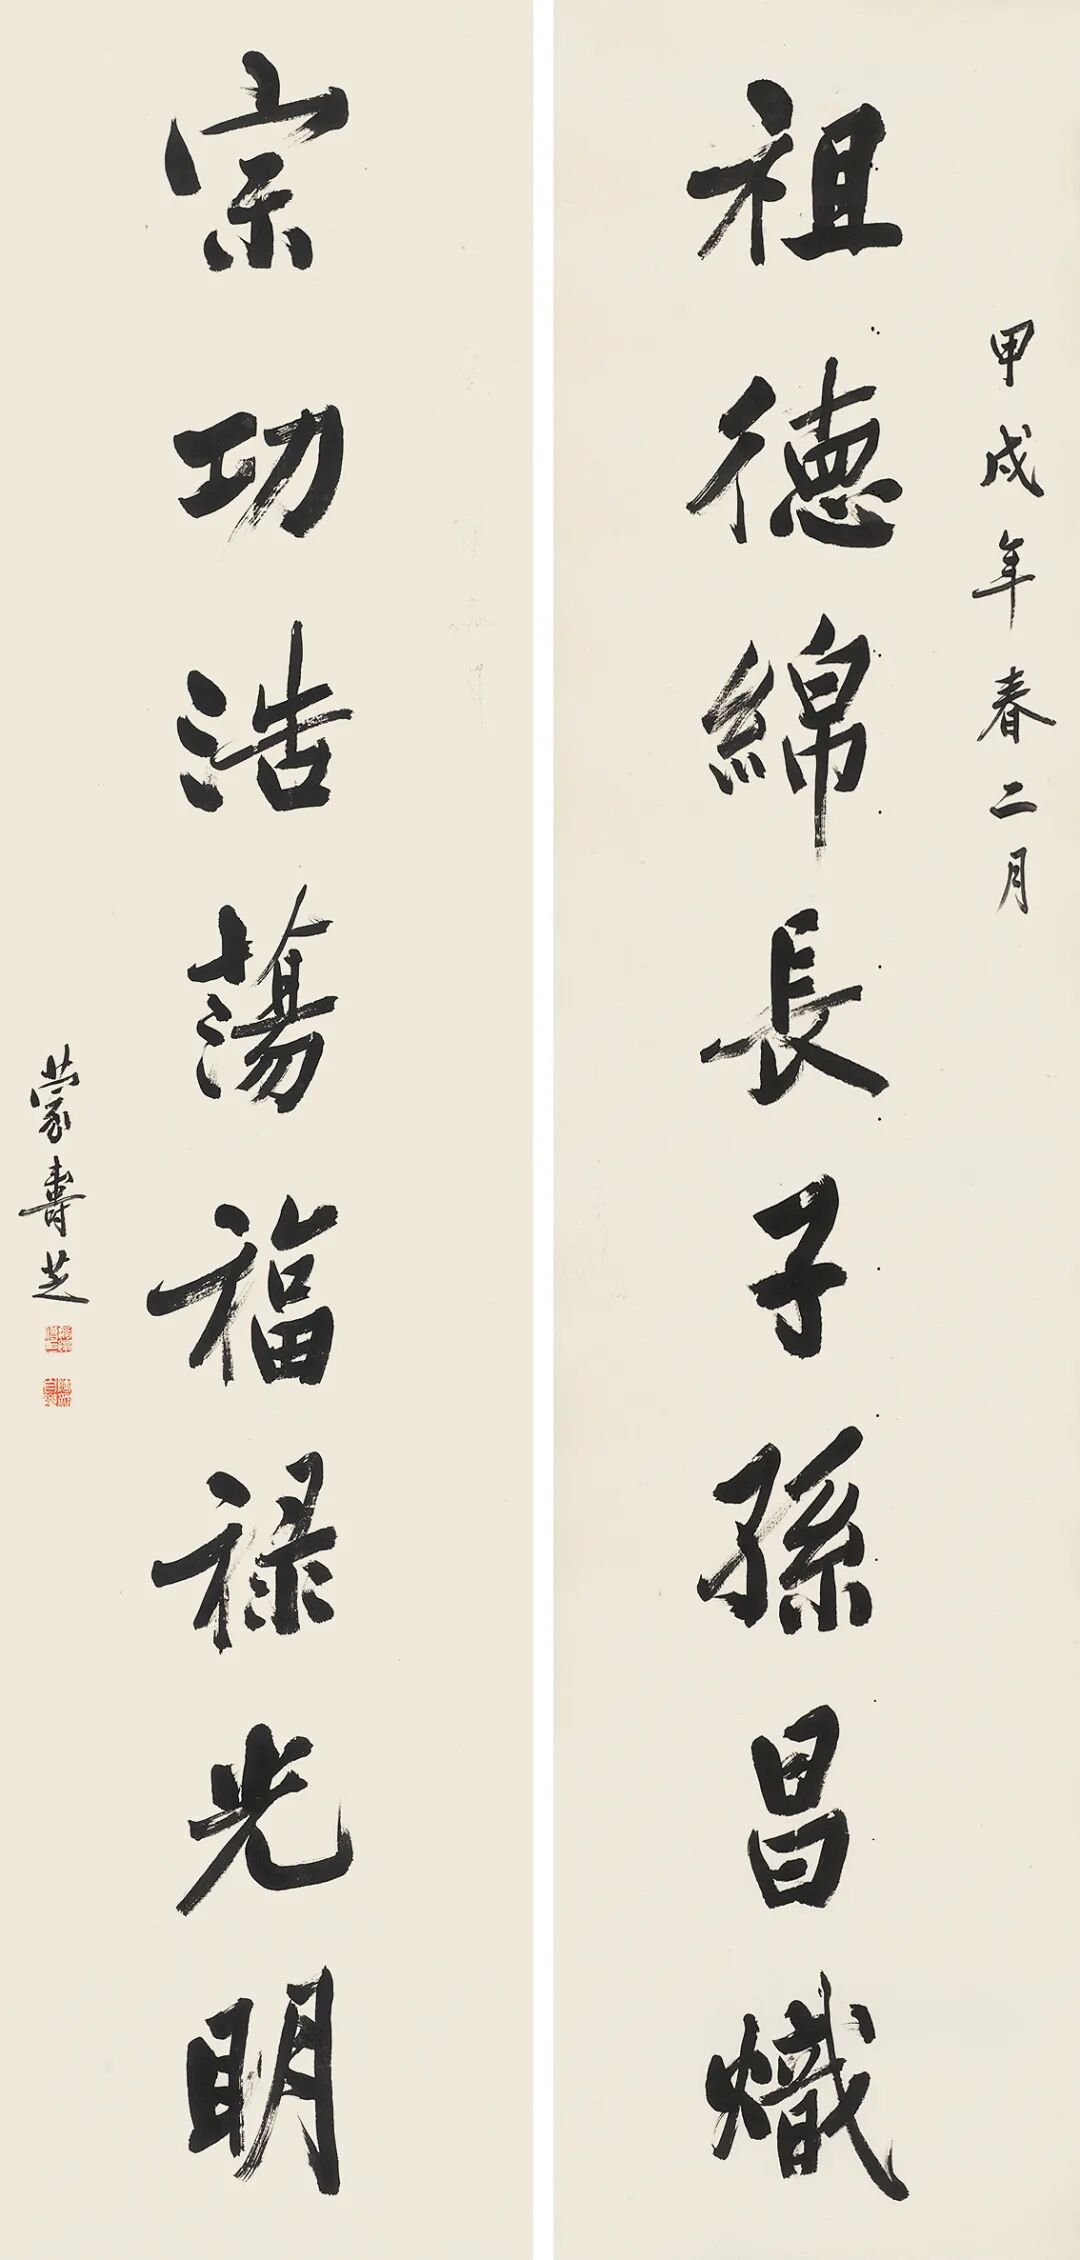 甲戌年春二月
祖德綿長子孫昌熾
宗功浩蕩福禄光明
蒙壽芝